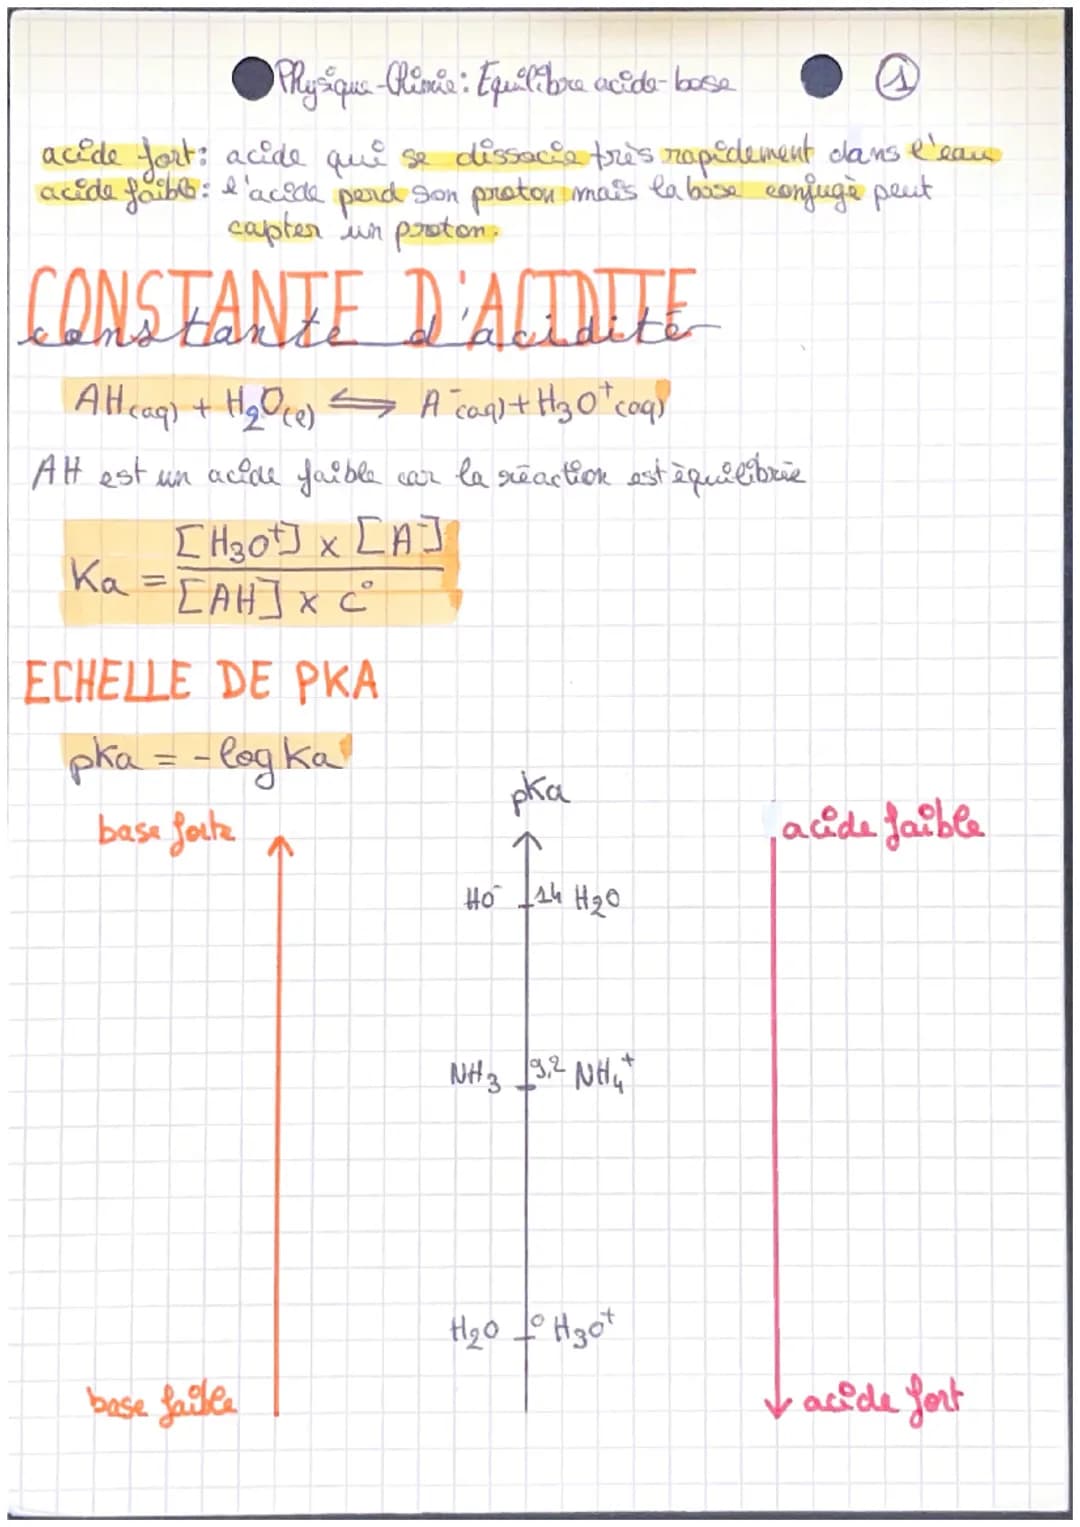 Physique-Chimie : Equilibre acide-base ①
acide fort : acide qui se dissocie très rapidement dans l'eau
acide faible : l'acide perd son proton mais la base conjugè peut
capter un proton.
CONSTANTE D'ACIDITE
constante d'acidité
AH(aq) + H₂O(l) ⇌ A⁻(aq) + H₃O⁺(aq)
AH est un acide faible car la réaction est èquilibrée
Ka = [H₃O⁺] x [A⁻] / [AH] x c°
ECHELLE DE PKA
pka = - log Ka
pKa
base forte
acide faible
HO⁻ 14 H₂O
NH₃ 9,2 NH₄⁺
H₂O 0 H₃O⁺
base faible
acide fort